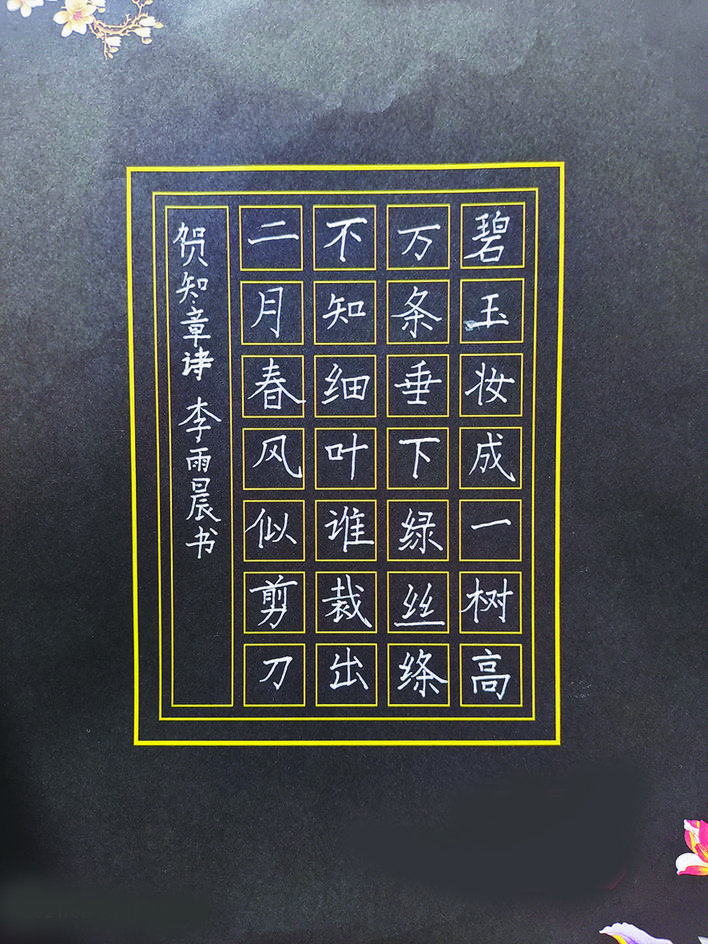 碧玉妆成一树高
万条垂下绿丝绦
不知细叶谁裁出
二月春风似剪刀
贺知章诗 李雨晨书